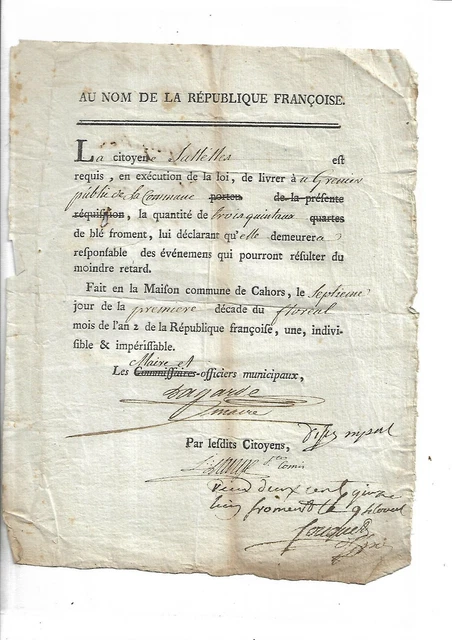 AU NOM DE LA RÉPUBLIQUE FRANÇOISE.
La citoyene Salletles est
requis, en exécution de la loi, de livrer à u Grenier
public de la Commune porteu de la présente
réquisition, la quantité de trois quintaux quartes
de blé froment, lui déclarant qu'elle demeurera
responsable des événemens qui pourront résulter du
moindre retard.
Fait en la Maison commune de Cahors, le septieme
jour de la premiere décade du floreal
mois de l'an 2 de la République françoise, une, indivi-
sible & impérissable.
Maire et
Les Commissaires-officiers municipaux,
Lagarde
maire
Par lesdits Citoyens,
deux cent
froment le 9 floreal